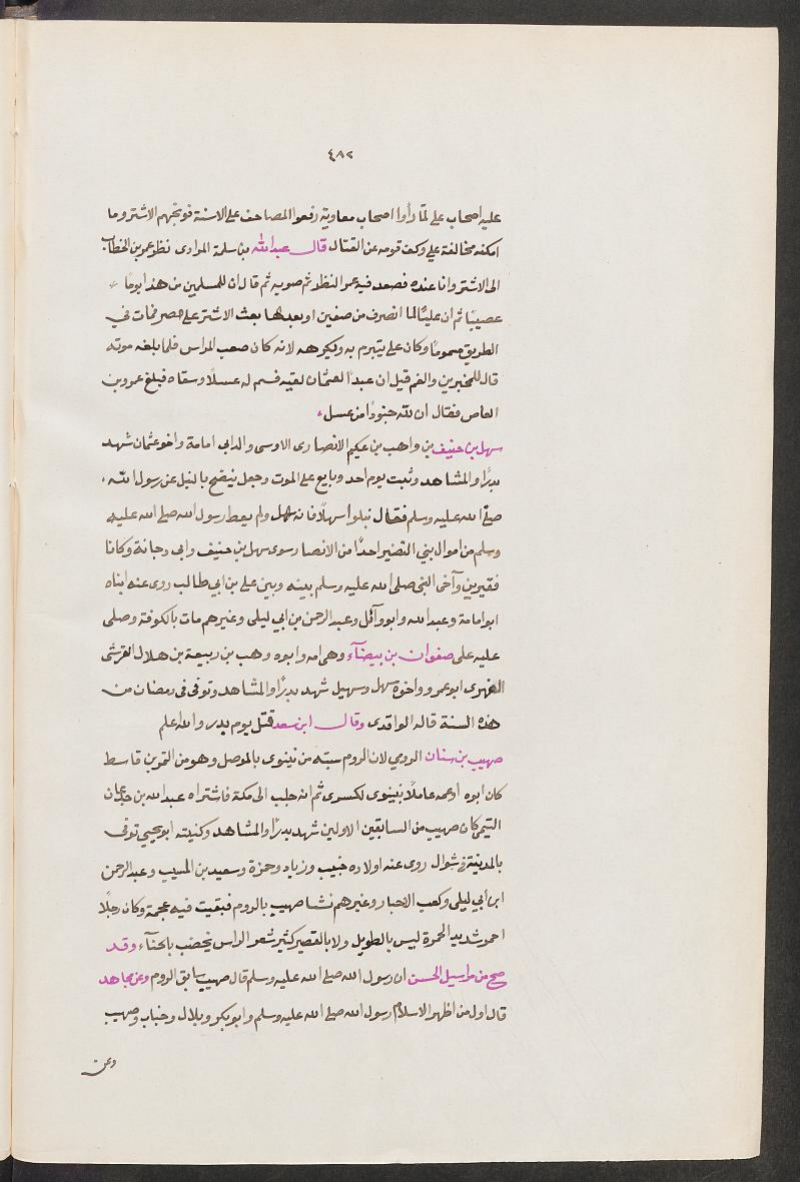 ٤٨٢
عليه اصحاب على لمّا رأوا اصحاب معاوية رفعوا المصاحف على الاسنة فوبخهم الاشتر وما
امكنه مخالفة علي وكف قومه عن القتال قال عبد الله بن سلمة المرادى نظر عمر بن الخطاب
الى الاشتر وانا عنده فصعد فيه عمر النظر ثم صوبه ثم قال ان للمسلمين من هذا يومًا
عصيبًا ثم ان عليًا لما انصرف من صفين او بعدها بعث الاشتر على مصر فمات في
الطريق مسمومًا وكان على يتبرم به ويكرهه لانه كان صعب المراس فلما بلغه موته
قال للمنخرين والفم قيل ان عبدًا لعثمان لقيه فسم له عسلًا وسقاه فبلغ عمرو بن
العاص فقال ان لله جنودًا من عسل
سهل بن حنيف بن واهب بن عكيم الانصارى الاوسى والد ابي امامة واخو عثمان شهد
بدرًا والمشاهد وثبت يوم احد وبايع على الموت وجعل ينضح بالنبل عن رسول الله
صلى الله عليه وسلم فقال نبلوا سهلًا فانه سهل ولم يعط رسول الله صلى الله عليه
وسلم من اموال بني النضير احدًا من الانصار سوى سهل بن حنيف وابي دجانة وكانا
فقيرين وآخى النبي صلى الله عليه وسلم بينه وبين على بن ابي طالب روى عنه ابناه
ابو امامة وعبد الله وابو وآئل وعبد الرحمن بن ابي ليلى وغيرهم مات بالكوفة وصلى
عليه على صفوان بن بيضآء وهى امه وابوه وهب بن ربيعة بن هلال القرشى
الفهرى ابو عمرو واخوه سهل وسهيل شهد بدرًا والمشاهد وتوفى فى رمضان من
هذه السنة قاله الواقدى وقال ابن سعد قتل يوم بدر والله اعلم
صهيب بن سنان الرومي لان الروم سبته من نينوى بالموصل وهو من النمر بن قاسط
كان ابوه او عمه عاملًا بنينوى لكسرى ثم انه جلب الى مكة فاشتراه عبد الله بن جدعان
التيمى كان صهيب من السابقين الاولين شهد بدرًا والمشاهد وكنيته ابو يحيى توفى
بالمدينة فى شوال روى عنه اولاده حبيب وزياد وحمزة وسعيد بن المسيب وعبد الرحمن
ابن أبي ليلى وكعب الاحبار وغيرهم نشا صهيب بالروم فبقيت فيه عجمة وكان رجلًا
احمر شديد الحمرة ليس بالطويل ولا بالقصير كثير شعر الراس يخضب بالحنآء وقد
صح من مراسيل الحسن ان رسول الله صلى الله عليه وسلم قال صهيب سابق الروم وعن مجاهد
قال اول من اظهر الاسلام رسول الله صلى الله عليه وسلم وابو بكر وبلال وخباب وصهيب
وعن